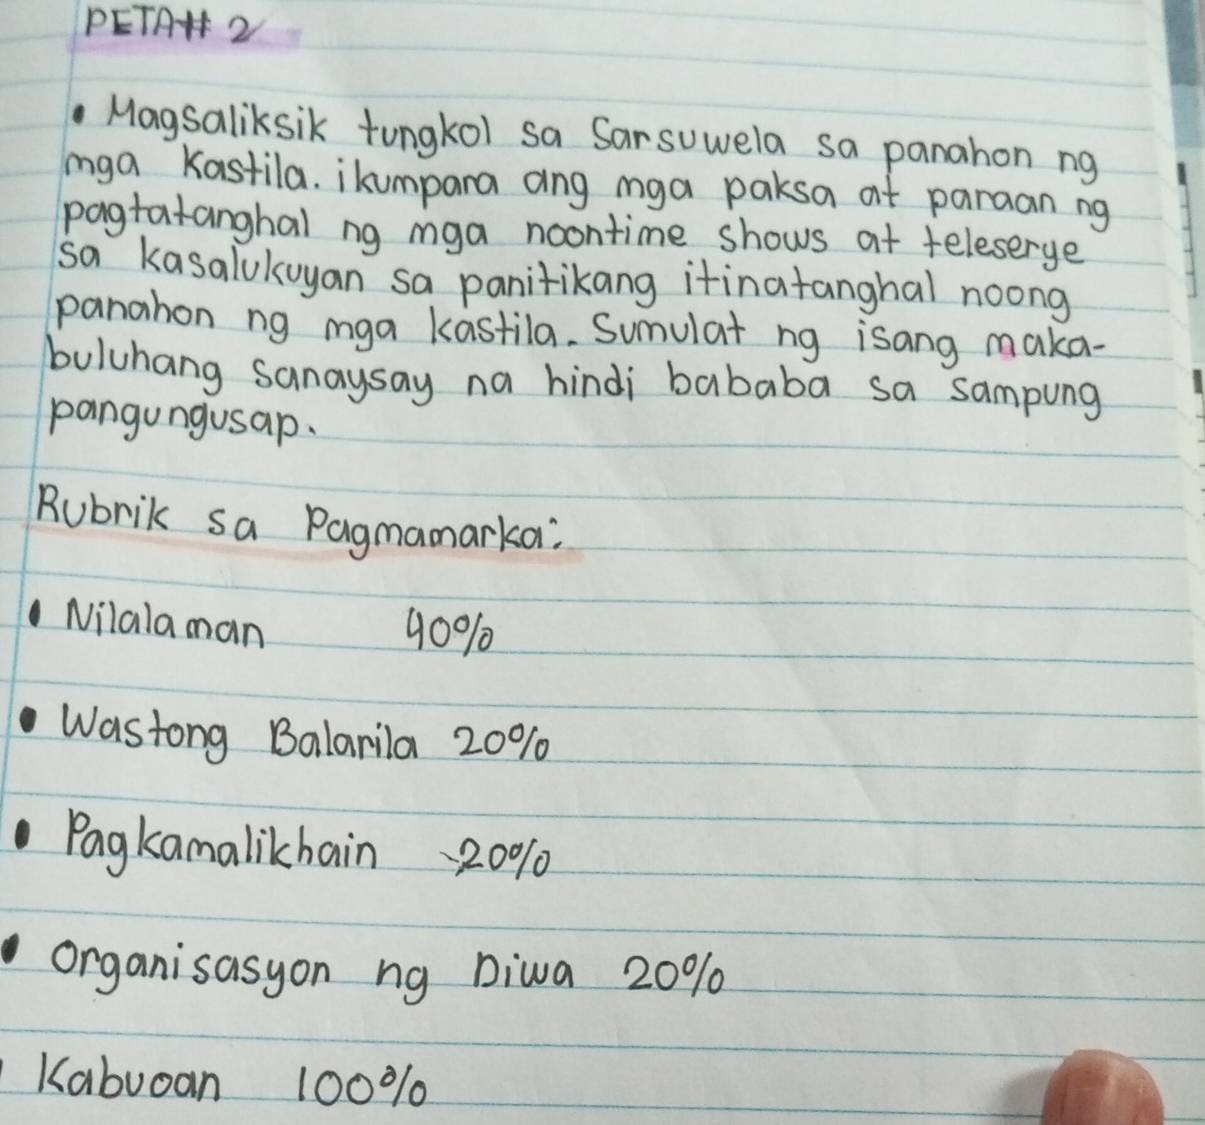 PETA# 2
• Magsaliksik tungkol sa Sarsuwela sa panahon ng
mga Kastila. ikumpara ang mga paksa at paraan ng
pagtatanghal ng mga noontime shows at teleserye
sa kasalukuyan sa panitikang itinatanghal noong
panahon ng mga kastila. Sumulat ng isang maka-
buluhang Sanaysay na hindi bababa sa sampung
pangungusap.
Rubrik sa Pagmamarka:
• Nilalaman 40%
• Wastong Balarila 20%
• Pagkamalikhain 20%
• Organisasyon ng Diwa 20%
Kabuoan 100%